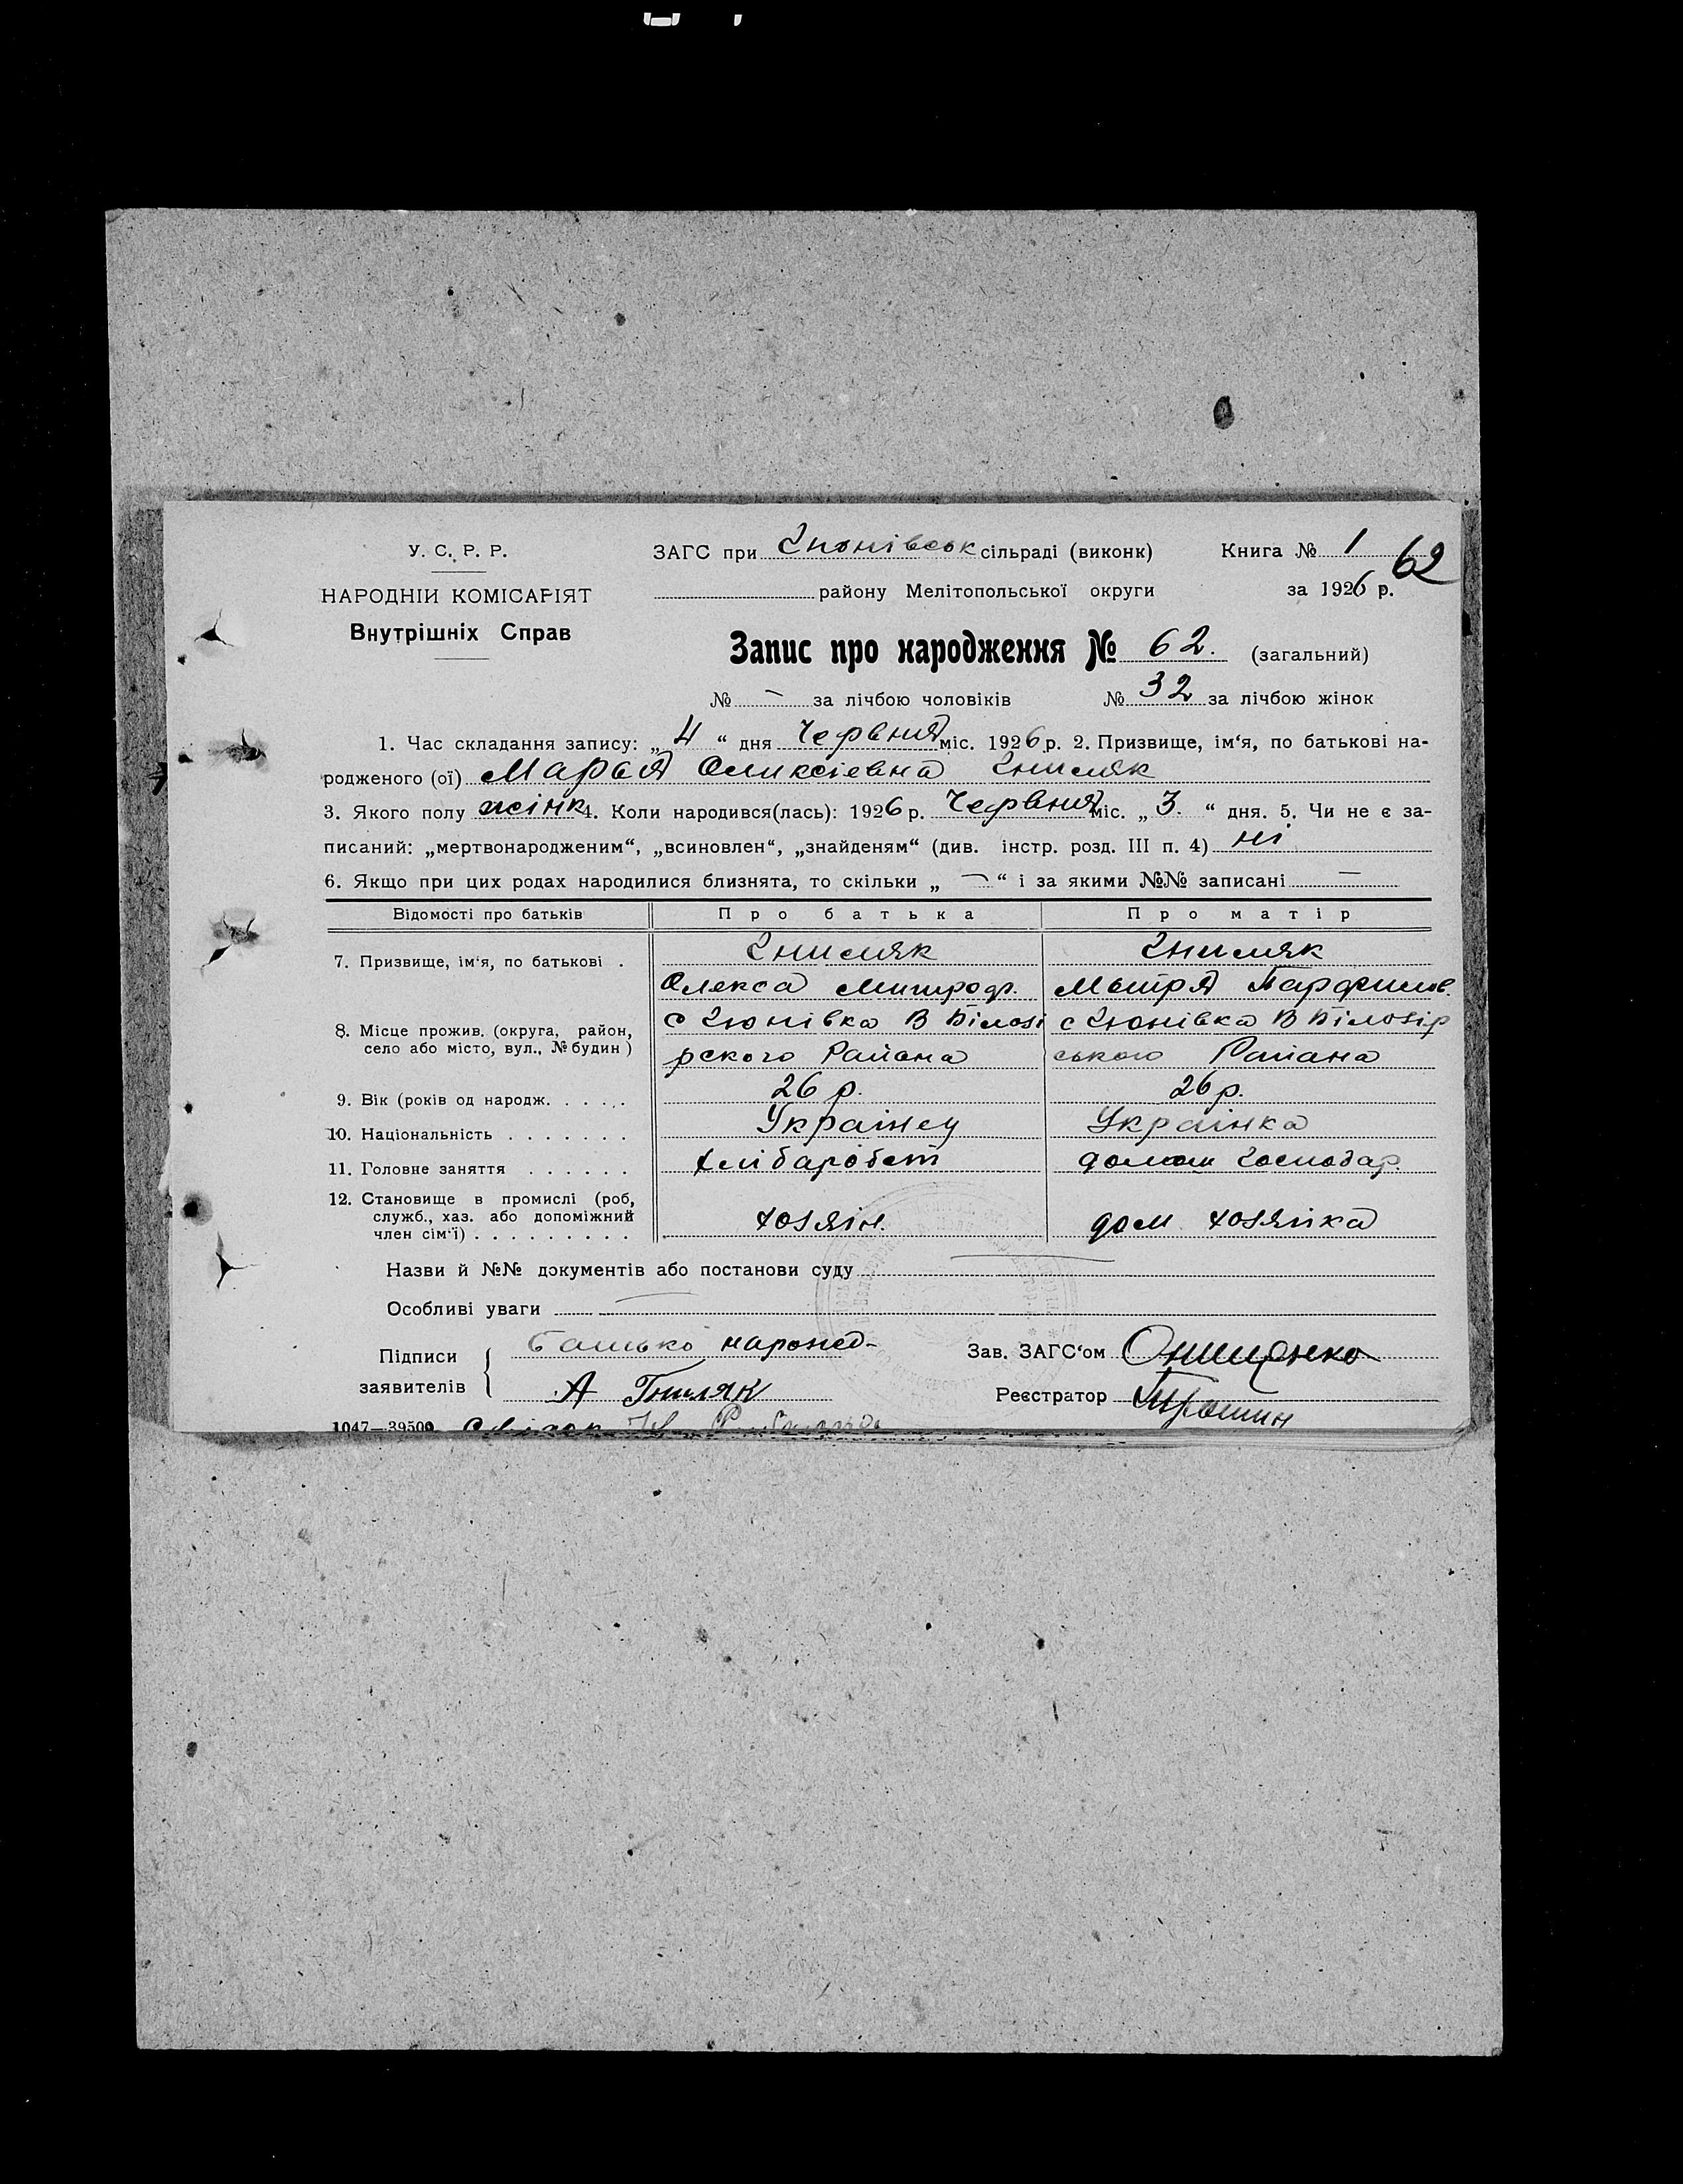 У. С. Р. Р.
НАРОДНІИ КОМІСАРІЯТ
Внутрішніх Справ
ЗАГС при Гюнівськ сільраді (виконк)
Книга № 1
62
району Мелітопольської округи
за 1926 р.
Запис про народження № 62. (загальний)
№ — за лічбою чоловіків № 32 за лічбою жінок
1. Час складання запису: „ 4 “ дня Червня міс. 1926 р. 2. Призвище, ім‘я, по батькові на-
родженого (ої) Марья Оликсіевна Гниляк
3. Якого полу жінк 4. Коли народився(лась): 1926 р. Червня міс. „ 3. “ дня. 5. Чи не є за-
писаний: „мертвонародженим“, „всиновлен“, „знайденям“ (див. інстр. розд. III п. 4) ні
6. Якщо при цих родах народилися близнята, то скільки „ — “ і за якими №№ записані —
Відомості про батьків Про батька Про матір
7. Призвище, ім‘я, по батькові . Гниляк Гниляк
Олекса Митроф. Мотря Парфилов.
8. Місце прожив. (округа, район, с Гюнівка В Білозі с Гюнівка В Білозір
село або місто, вул., № будин ) рского Района ського Района
9. Вік (років од народж. . . . . 26 р. 26 р.
10. Національність . . . . . . . Украінец Украінка
11. Головне заняття . . . . . . хлібаробст домаш Господар.
12. Становище в промислі (роб,
служб., хаз. або допоміжний
член сім‘ї) . . . . . . . . . хозяін. дом хозяйка
Назви й №№ документів або постанови суду
Особливі уваги
Підписи Батько нарожд-
заявителів А Гниляк
Зав. ЗАГС‘ом Онищенко
Реєстратор Трошин
1047—39500